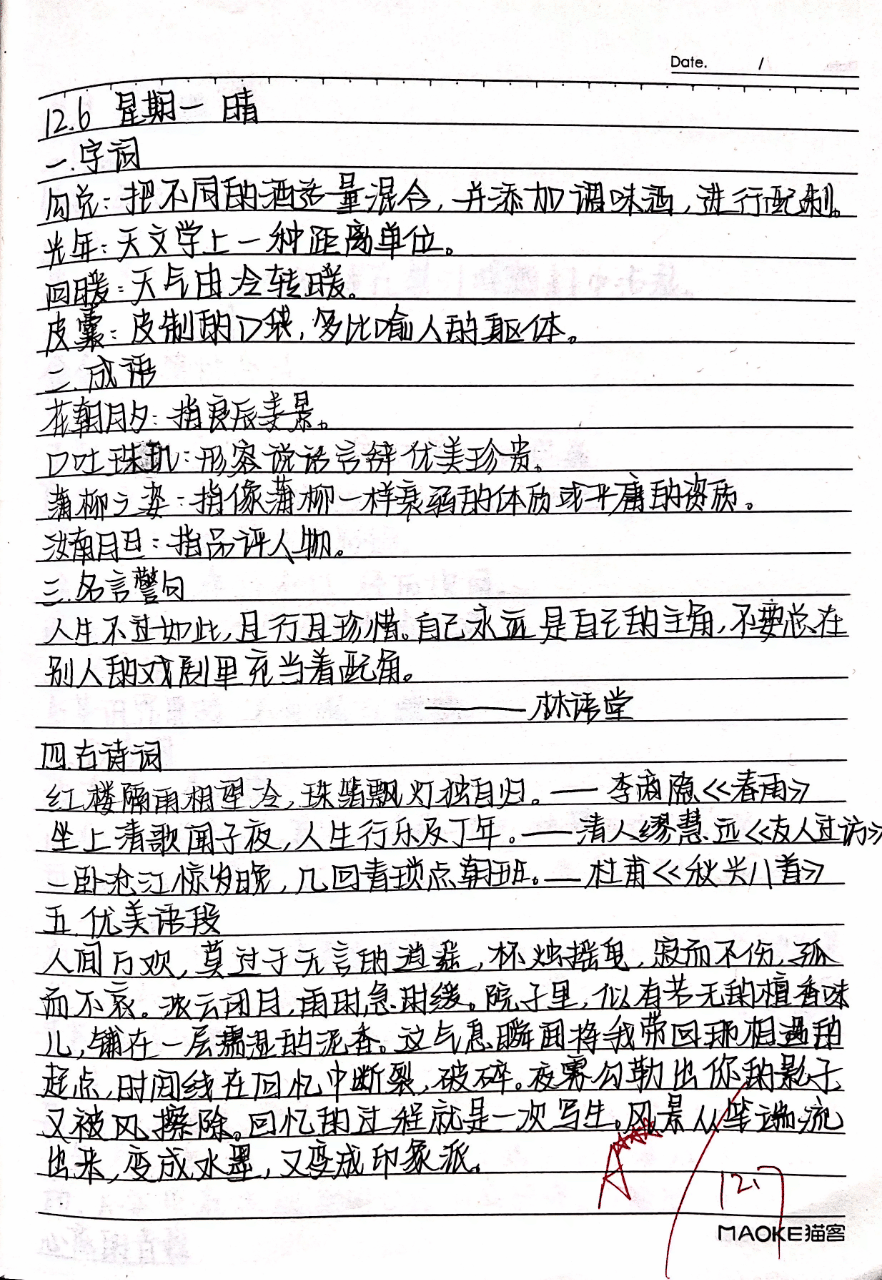 Date. /
12.6 星期一 晴
一.字词
勾兑:把不同的酒适量混合,并添加调味酒,进行配制。
光年:天文学上一种距离单位。
回暖:天气由冷转暖。
皮囊:皮制的口袋,多比喻人的躯体。
二.成语
花朝月夕:指良辰美景。
口吐珠玑:形容说话言辞优美珍贵。
蒲柳之姿:指像蒲柳一样衰弱的体质或平庸的资质。
汝南月旦:指品评人物。
三.名言警句
人生不过如此,且行且珍惜。自己永远是自己的主角,不要总在
别人的戏剧里充当着配角。
——林语堂
四.古诗词
红楼隔雨相望冷,珠箔飘灯独自归。—李商隐《春雨》
坐上清歌闻子夜,人生行乐及丁年。—清人缪慧远《友人过访》
一卧沧江惊岁晚,几回青琐点朝班。—杜甫《秋兴八首》
五.优美语段
人间万欢,莫过于无言的道路,杯烛摇曳,寂而不伤,孤
而不哀。浓云闭目,雨时急时缓。院子里,似有若无的檀香味
儿,铺在一层濡湿的泥香。这气息瞬间将我带回那相遇的
起点,时间线在回忆中断裂,破碎。夜雾勾勒出你的影子
又被风擦除。回忆的过程就是一次写生,风景从笔端流
出来,变成水墨,又变成印象派。
A
12.7
MAOKE猫客